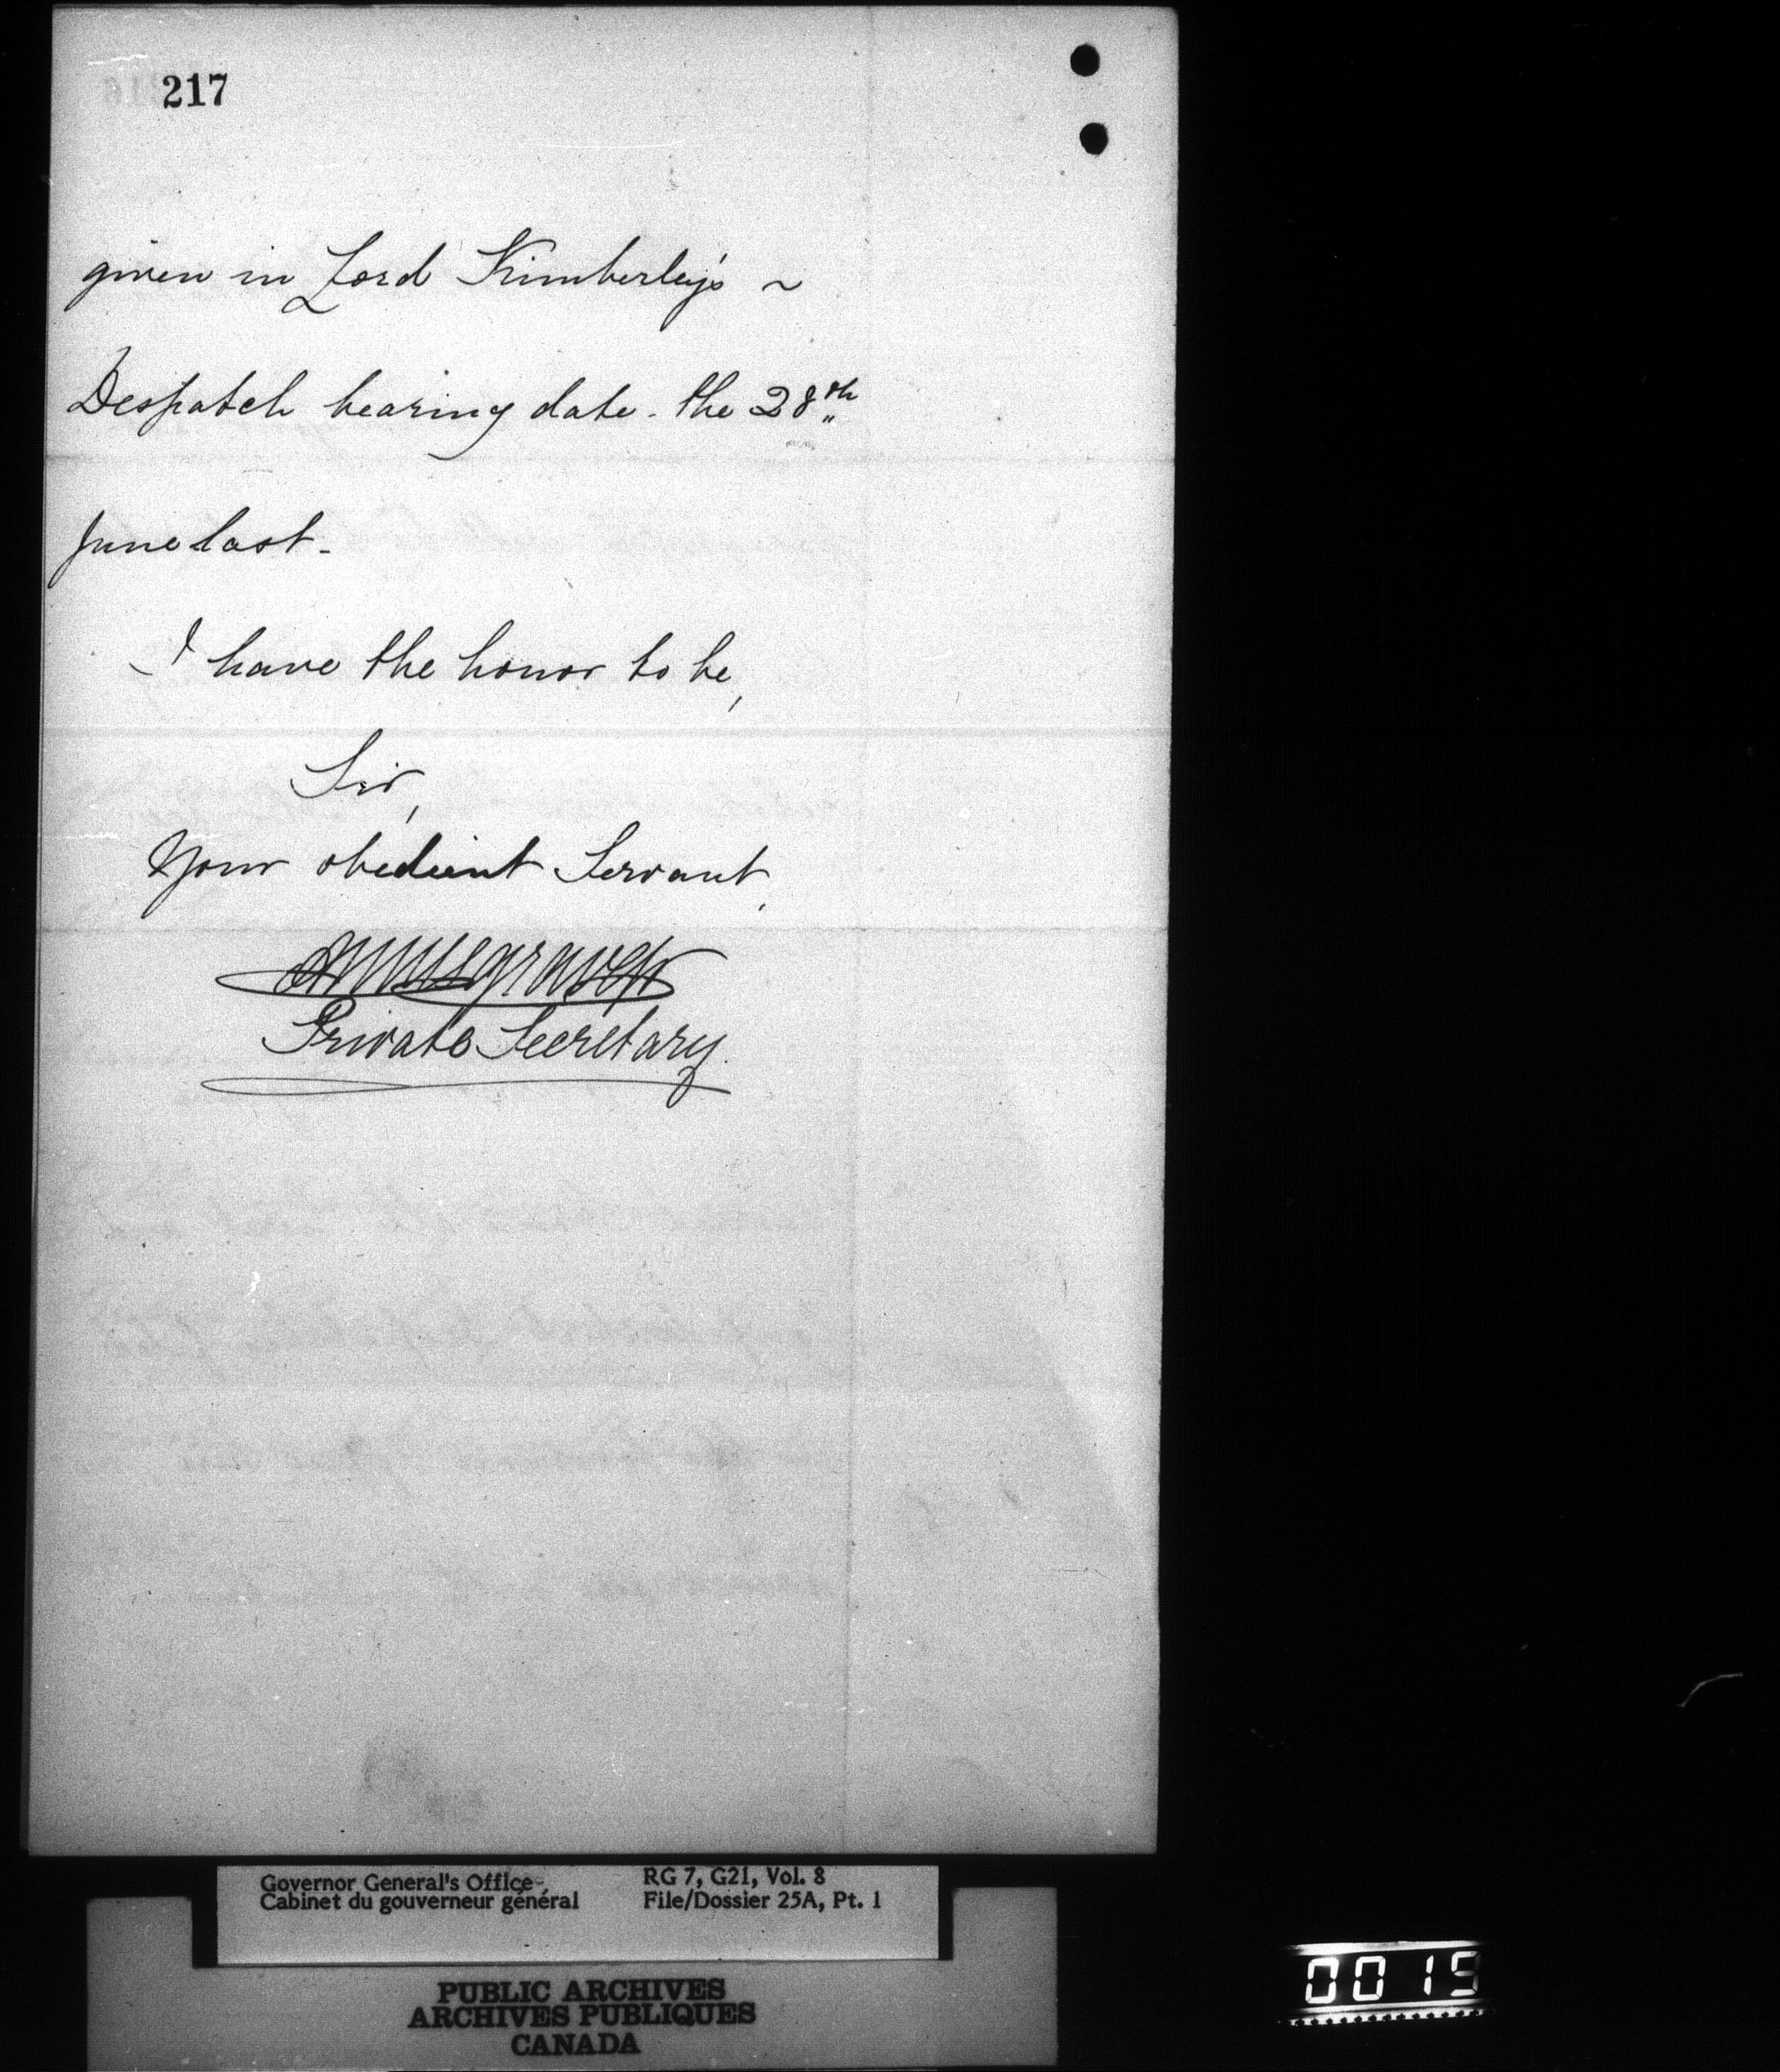 217
given in Lord Kimberley's ~
Despatch bearing date - the 28th
June last -
I have the honor to be,
Sir,
Your obedient Servant,
AMusgraveJr
Private Secretary.
Governor General's Office
Cabinet du gouverneur général
RG 7, G21, Vol. 8
File/Dossier 25A, Pt. 1
PUBLIC ARCHIVES
ARCHIVES PUBLIQUES
CANADA
0019